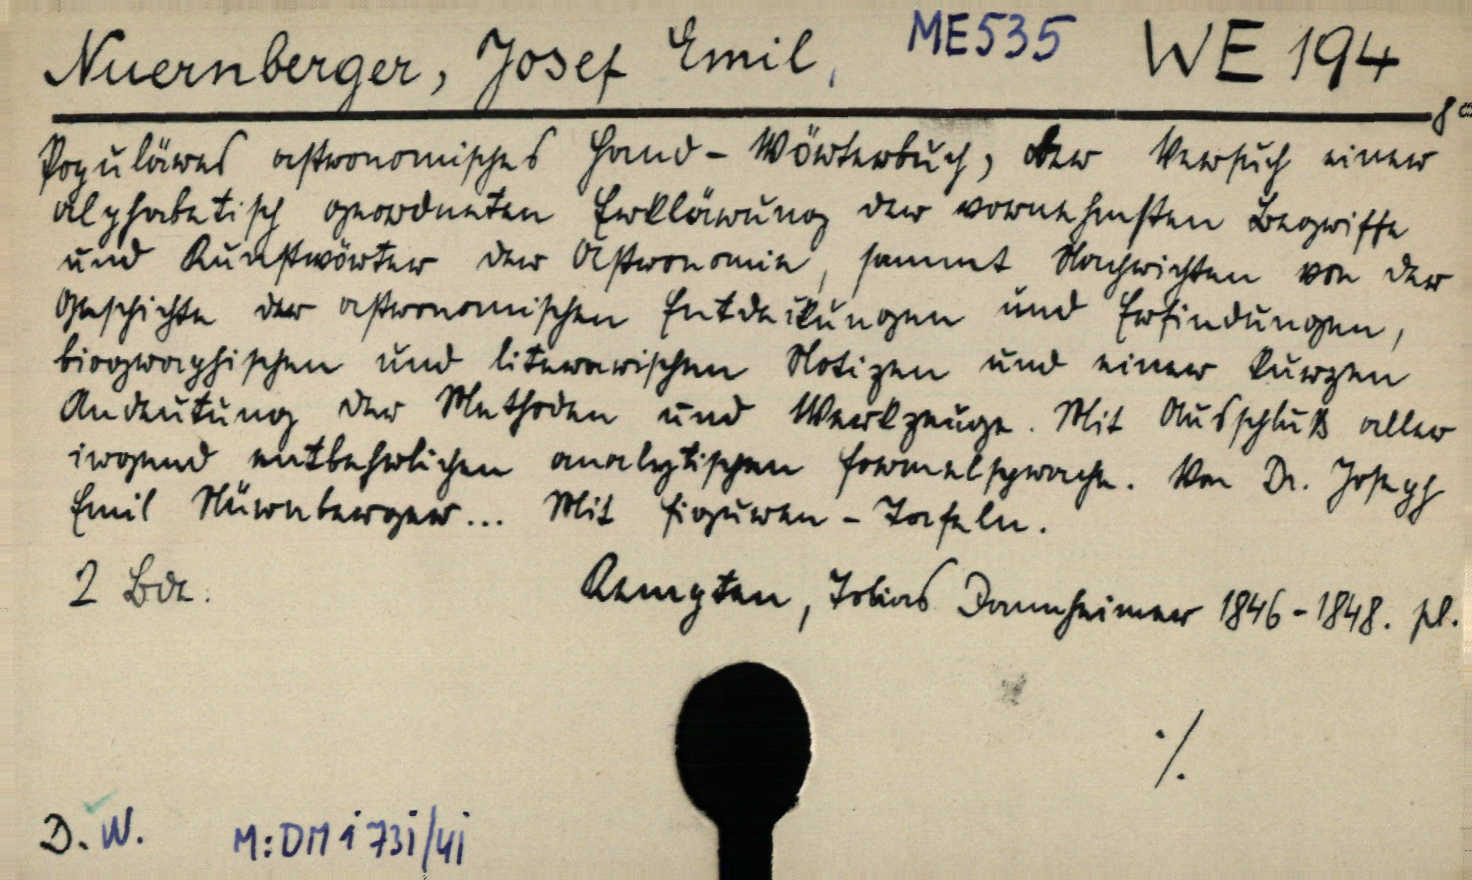 Nuernberger, Josef Emil, ME535 WE 194
8°
Populäres astronomisches Hand-Wörterbuch, oder Versuch einer
alphabetisch geordneten Erklärung der vornehmsten Begriffe
und Kunstwörter der Astronomie, sammt Nachrichten von der
Geschichte der astronomischen Entdeckungen und Erfindungen,
biographischen und literarischen Notizen und einer kurzen
Andeutung der Methoden und Werkzeuge. Mit Ausschluß aller
irgend entbehrlichen analytischen Formelsprache. Von Dr. Joseph
Emil Nürnberger... Mit Figuren-Tafeln.
2 Bde. Kempten, Tobias Dannheimer 1846-1848. pl.
./.
D. W. M: DM i 73i/4i